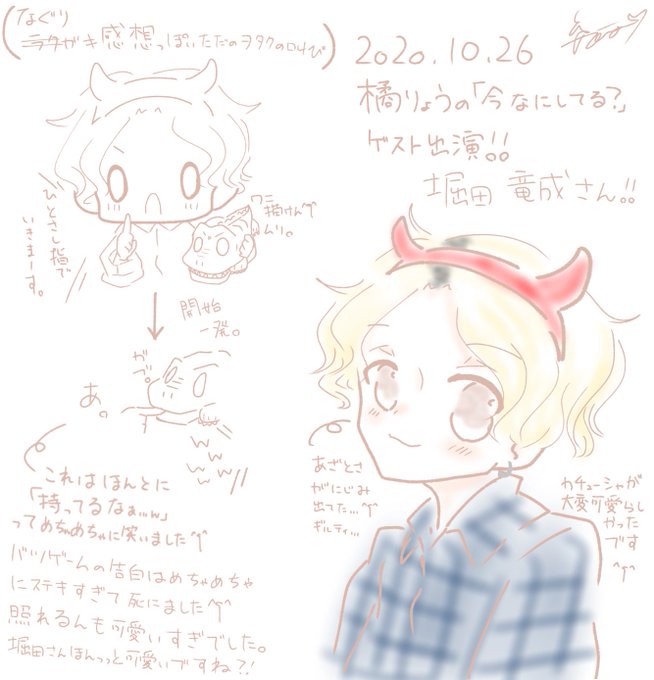 (なぐり
ラクガキ感想っぽいただのヲタクの叫び)
2020.10.26
橘りょうの「今なにしてる?」
ゲスト出演!!
堀田 竜成さん!!
ひとさし指で
いきまーす。
ワニ
描けん^t^
ムリ。
開始
一発。
ガブ。
あ。
w w
w w
w w //
これはほんとに
「持ってるなぁ…w」
ってめちゃめちゃに笑いました^t^
バツゲームの告白はめちゃめちゃ
にステキすぎて死にました^t^
照れるんも可愛いすぎでした。
堀田さんほんっっと可愛いですね?!
あざとさ
がにじみ
出てた…^t^
ギルティ…
カチューシャが
大変可愛らし
かった
です
^t^